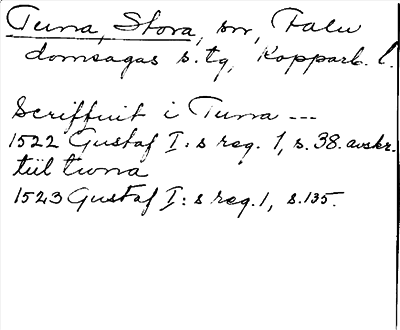 Tuna, Stora, sn, Falu
domsagas s. tg, Kopparb. l.
Scriffuit i Tuna ---
1522 Gustaf I:s reg. 1, s. 38. avskr.
till twna
1523 Gustaf I:s reg. 1, s. 135.